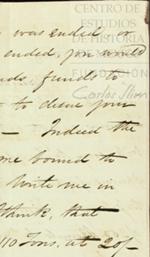 CENTRO DE
ESTUDIOS
DE HISTORIA
DE MEXICO
FUNDACIÓN
Carlos Slim
was ended, or
ended, you would
funds to
to clear your
— Indeed the
me bound to
Write me in
thank, that
110 Tons, at 20/-